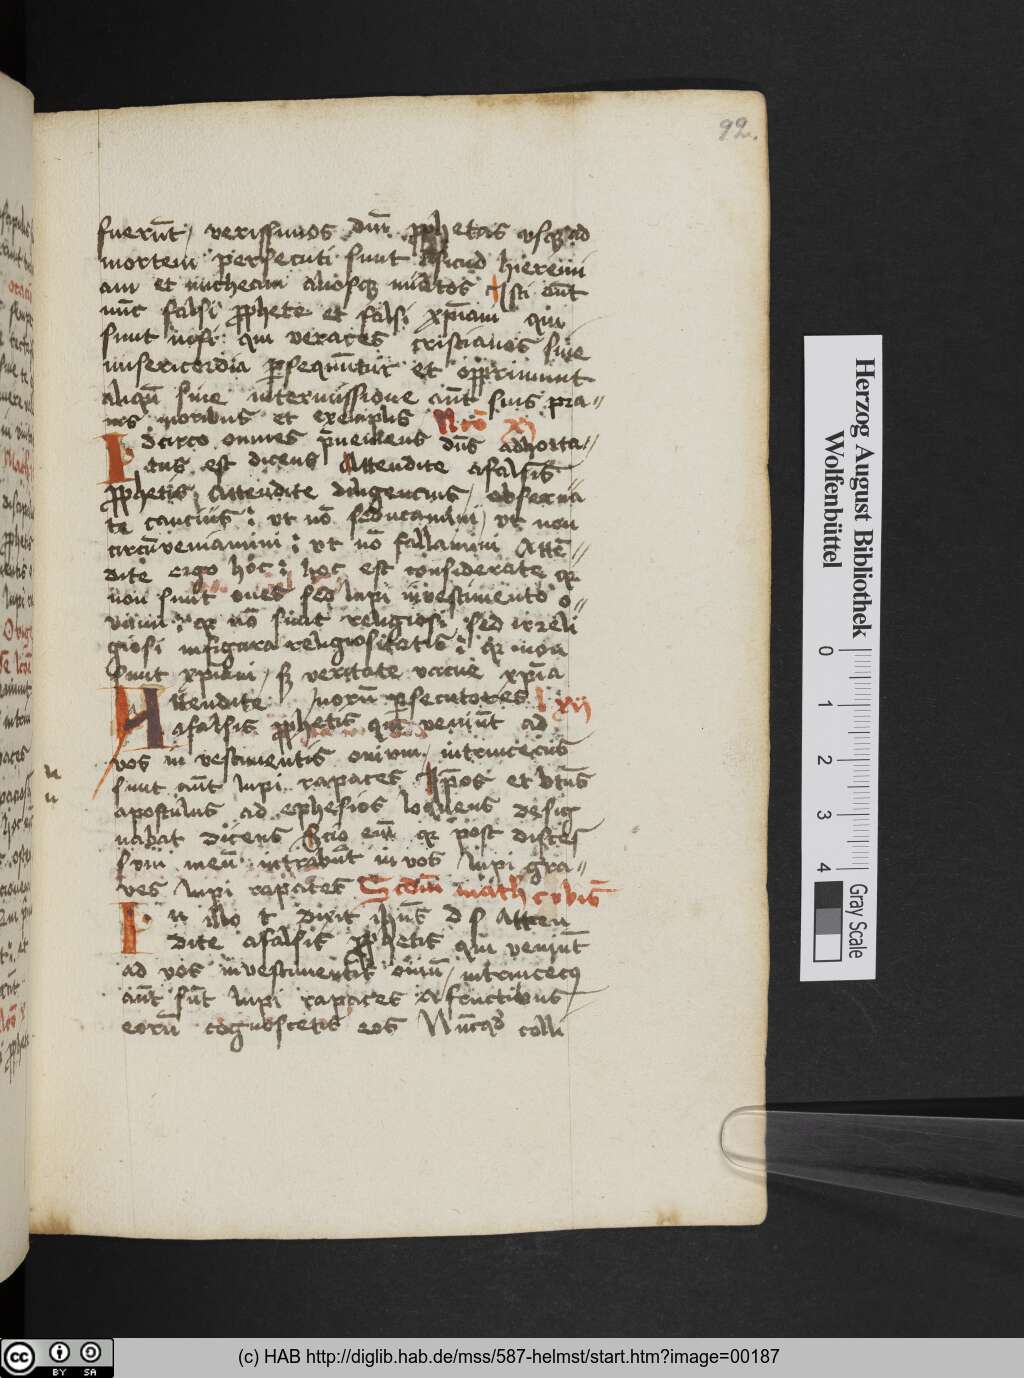 92.
fuerūt / verissimos dm̄ ꝓphetas vsqꝫ ad
mortem persecuti sunt sicud hieremi
am et micheam aliosqꝫ multos Isti aūt
nūc falsi ꝓphete et falsi xpiani qui
sunt qui veraces cristianos sine
misericordia ꝑsequūtur et opprimunt
aliqū sine intermissione aūt suis pra
uis moribus et exemplis
Idcirco omnes dn̄s adhorta
tus est dicens Attendite afalsis
ꝓphetis Attendite diligencius / obserua
te caucius vt nō seducamini / vt non
circūueniamini vt nō fallamini Attē
dite ergo hoc hoc est considerate qꝛ
non sunt oues sed lupi īvestimento o
uium qꝛ nō sunt religiosi sed irreli
giosi infigura religiositatis qꝛ non
sunt xpiani / sꝫ veritate vacue xp̄ia
Attendite norū ꝑsecutores xij
afalsis ꝓphetis qui veniūt ad
vos in vestimentis ouium / intrincecus
sunt aūt lupi rapaces
apostulus ad ephesios loquens desig
nabat dicens Scio em̄ qꝛ post disces
sum meū intrabūt in vos lupi gra
ues lupi rapaces Scdm̄ math
In illo t dixit ihūs d s Atten
dite afalsis ꝓphetis qui veniūt
ad vos in vestimentis ouiū / intrincecꝰ
aūt sūt lupi rapaces A fructibus
eorū cognoscetis eos Nūcqd colli
Herzog August Bibliothek
Wolfenbüttel
0 1 2 3 4
Gray Scale
cc BY SA
(c) HAB http://diglib.hab.de/mss/587-helmst/start.htm?image=00187